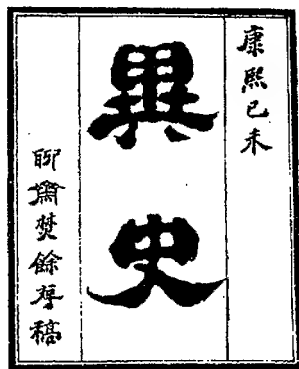 康熙己未
異史
聊齋焚餘存稿